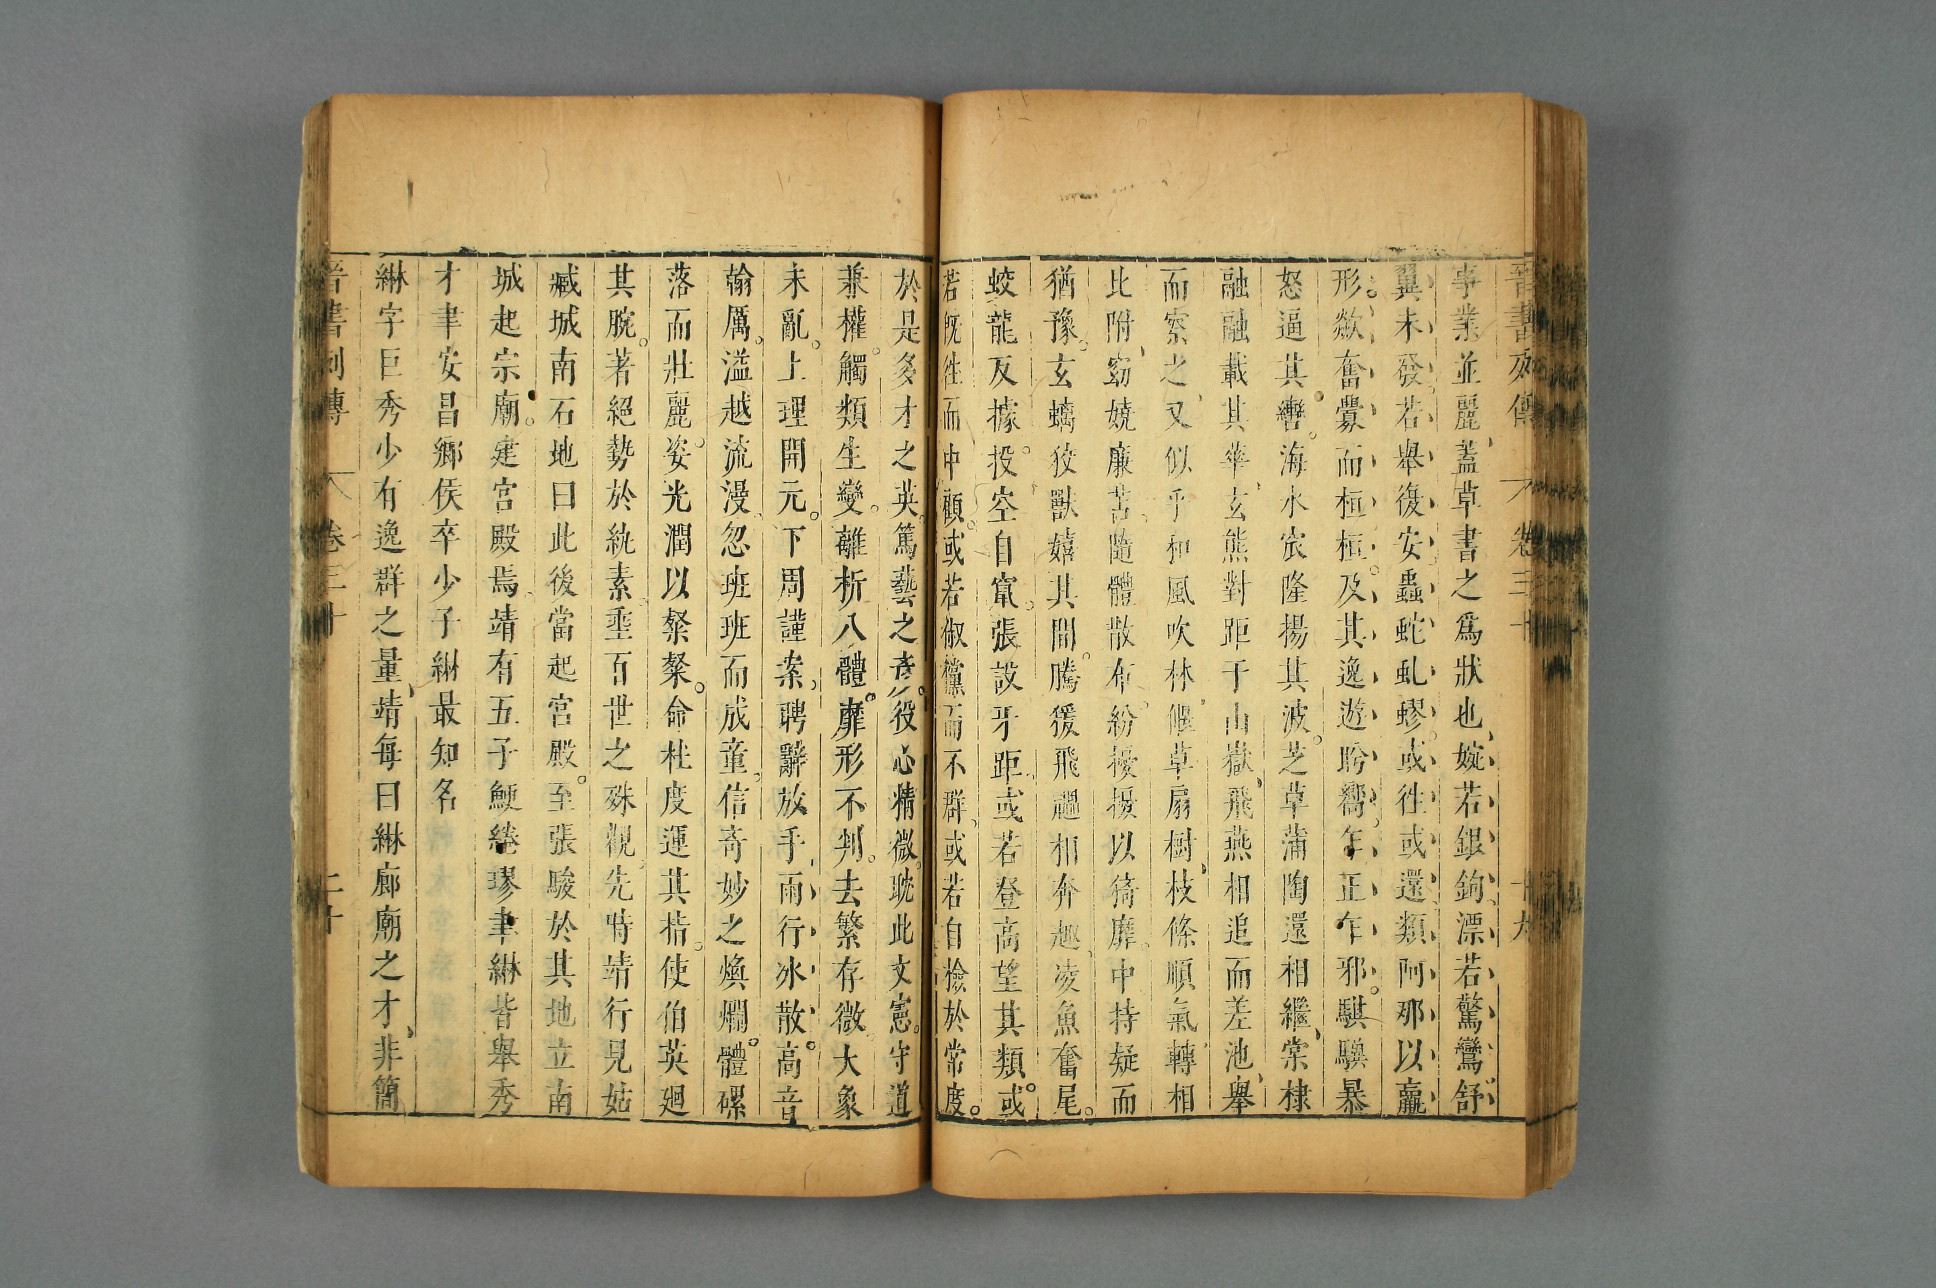 晉書列傳 卷三十 十九
事業並麗蓋草書之爲狀也婉若銀鉤漂若驚鸞舒
翼未發若舉復安蟲蛇虬蟉或往或還類阿那以羸
形歘奮舋而桓桓及其逸遊盻嚮乍正乍邪騏驥暴
怒逼其轡海水窊隆揚其波芝草蒲陶還相繼棠棣
融融載其華玄熊對距于山嶽飛燕相追而差池舉
而察之又似乎和風吹林偃草扇樹枝條順氣轉相
比附窈嬈廉苫隨體散布紛擾擾以猗靡中持疑而
猶豫玄螭狡獸嬉其間騰猨飛鼺相奔趣凌魚奮尾
蛟龍反據投空自竄張設牙距或若登高望其類或
若旣往而中顧或若俶儻而不群或若自檢於常度
於是多才之英篤藝之彥役心精微躭此文憲守道
兼權觸類生變離析八體靡形不判去繁存微大象
未亂上理開元下周謹案聘辭放手雨行冰散高音
翰厲溢越流漫忽班班而成章信奇妙之煥爛體磥
落而壯麗姿光潤以粲粲命杜度運其指使伯英廻
其腕著絕勢於紈素垂百世之殊觀先時靖行見姑
臧城南石地曰此後當起宮殿至張駿於其地立南
城起宗廟建宮殿焉靖有五子鯁綣璆聿綝皆舉秀
才聿安昌鄉侯卒少子綝最知名
綝字巨秀少有逸群之量靖每曰綝廊廟之才非簡
晉書列傳 卷三十 二十